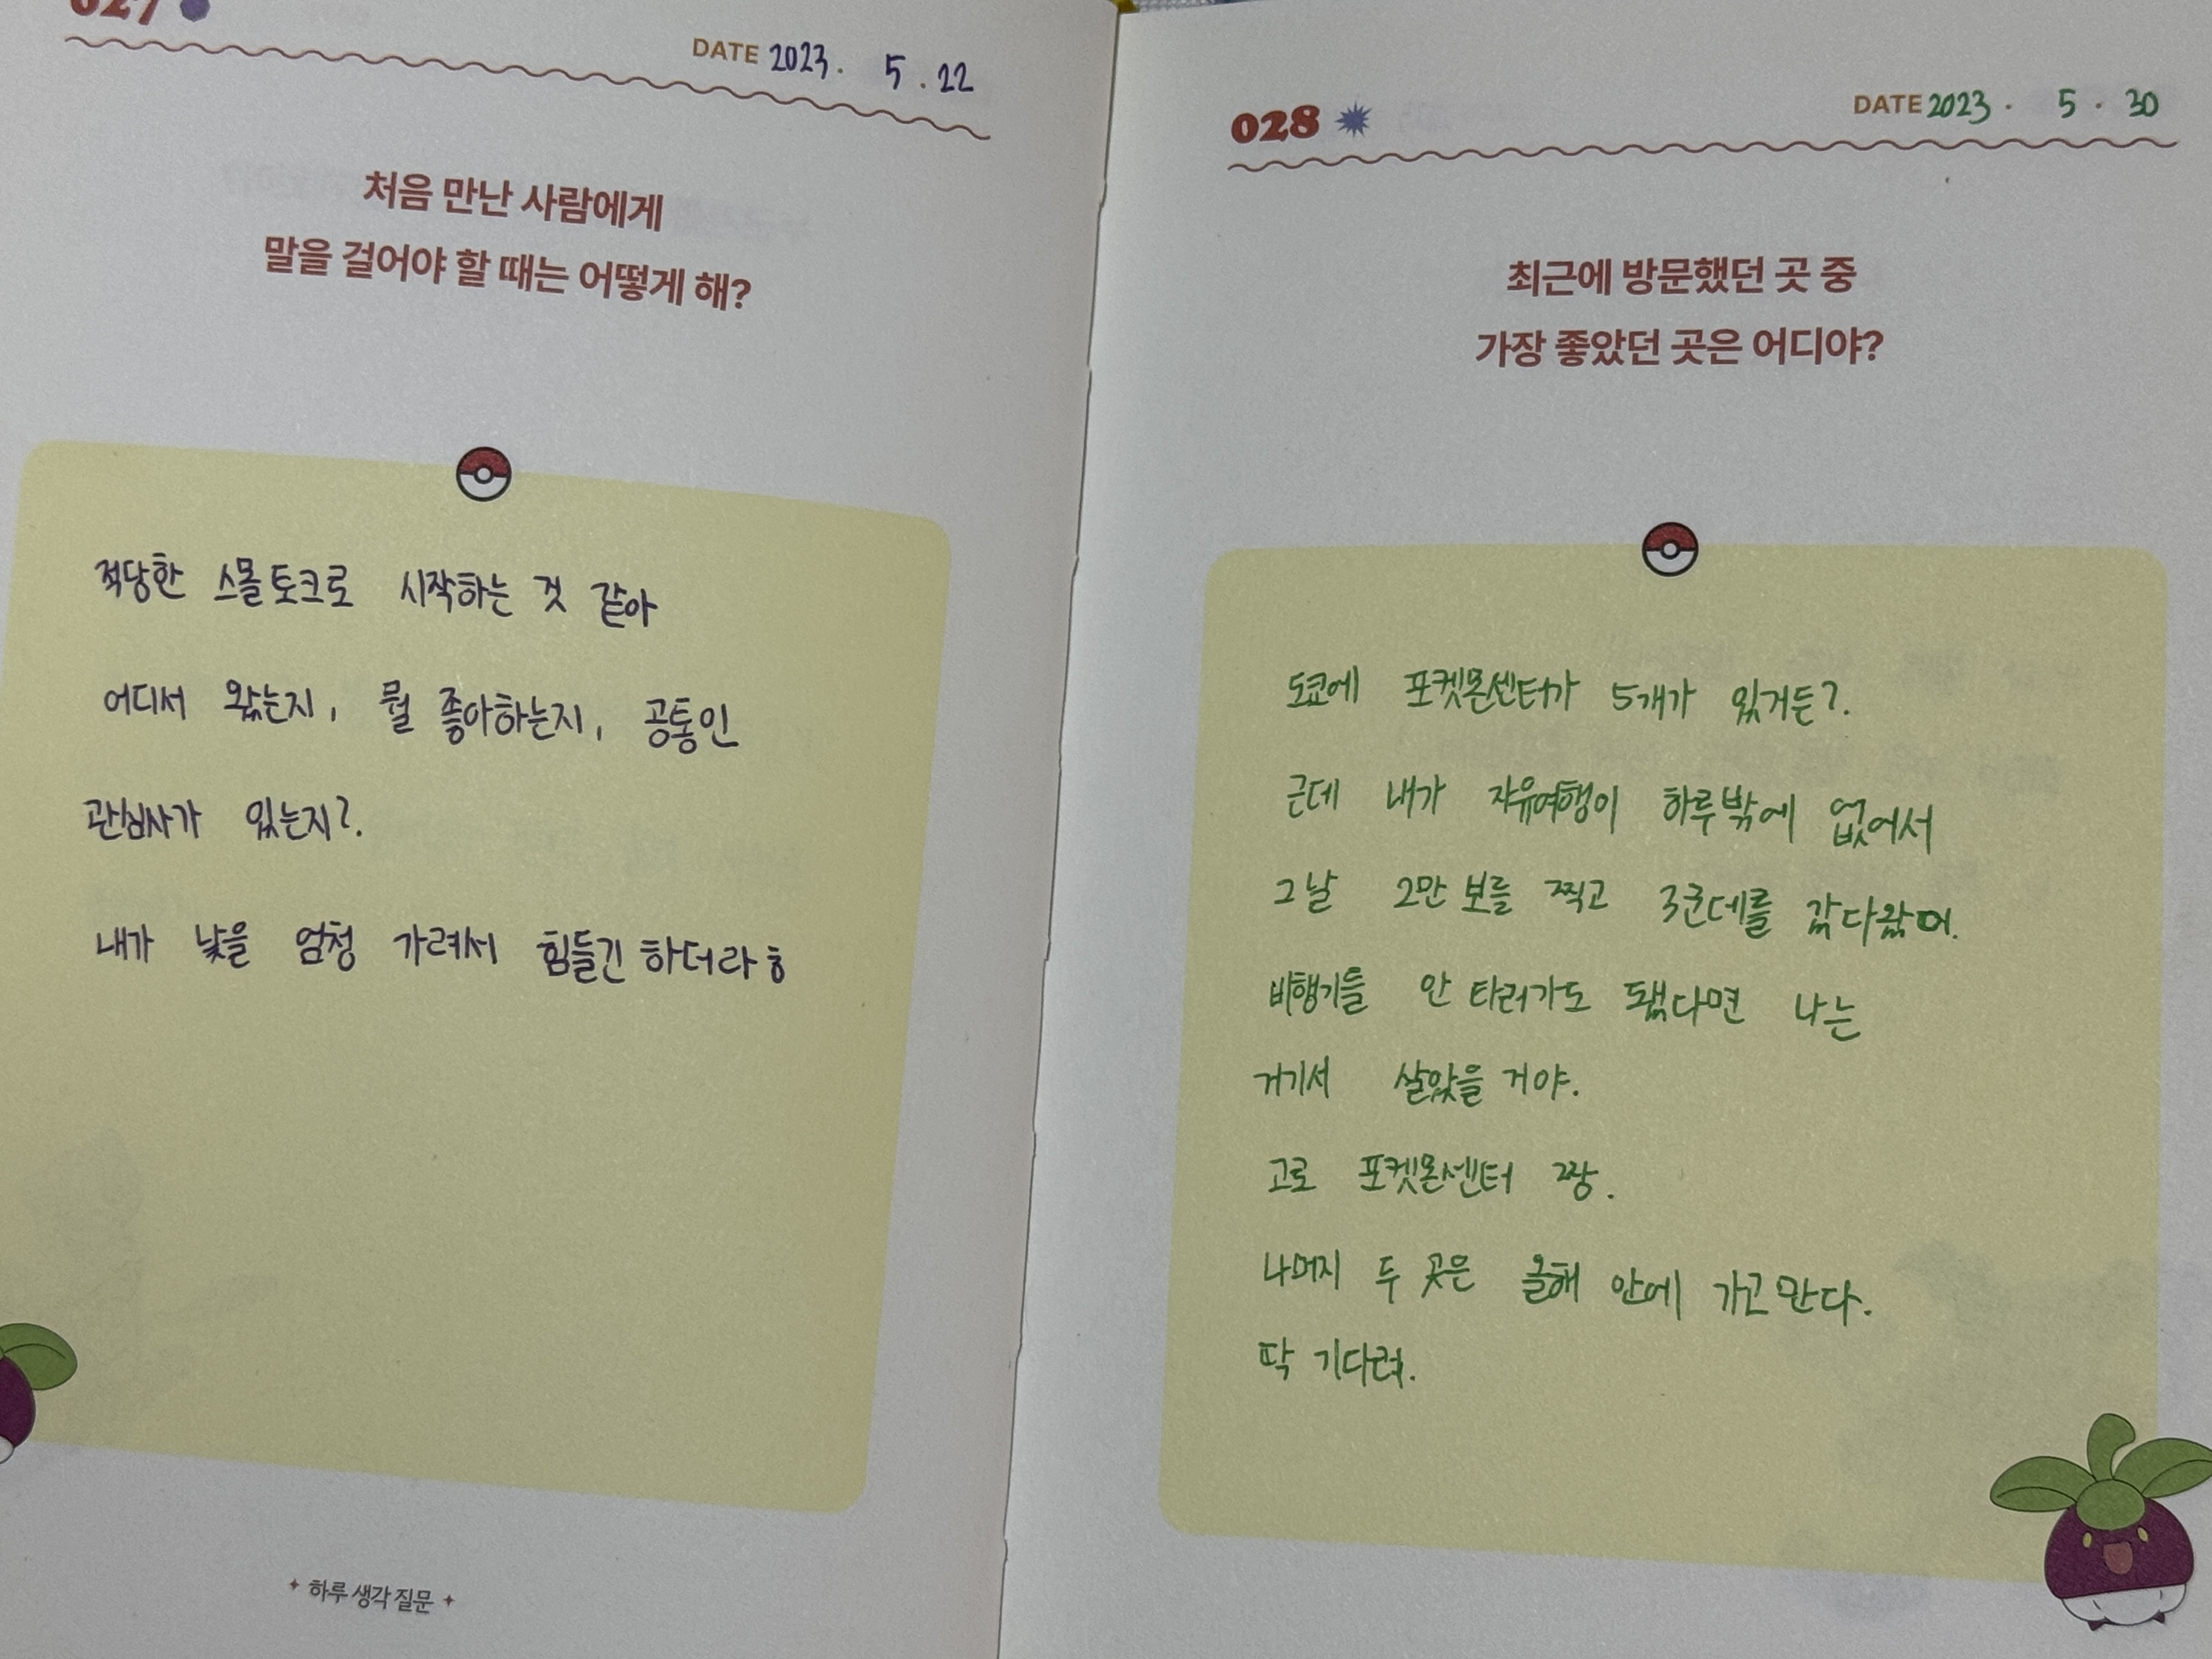 027
DATE 2023. 5. 22
처음 만난 사람에게
말을 걸어야 할 때는 어떻게 해?
적당한 스몰토크로 시작하는 것 같아
어디서 왔는지, 뭘 좋아하는지, 공통인
관심사가 있는지?.
내가 낯을 엄청 가려서 힘들긴 하더라ㅎ
하루 생각 질문
028
DATE 2023. 5. 30
최근에 방문했던 곳 중
가장 좋았던 곳은 어디야?
도쿄에 포켓몬센터가 5개가 있거든?.
근데 내가 자유여행이 하루밖에 없어서
그날 2만 보를 찍고 3군데를 갔다왔어.
비행기를 안 타러가도 됐다면 나는
거기서 살았을 거야.
고로 포켓몬센터 짱.
나머지 두 곳은 올해 안에 가고 만다.
딱 기다려.